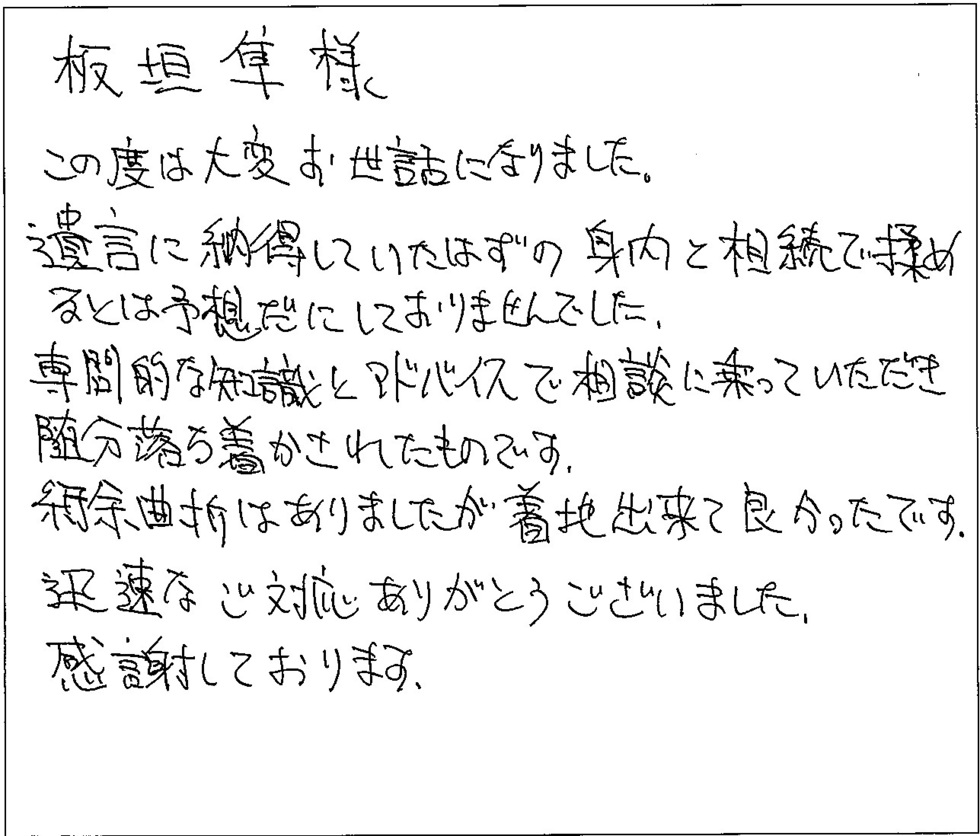 板垣隼様
この度は大変お世話になりました。
遺言に納得していたはずの身内と相続で揉め
るとは予想だにしておりませんでした。
専門的な知識とアドバイスで相談に乗っていただき
随分落ち着かされたものです。
紆余曲折はありましたが着地出来て良かったです。
迅速なご対応ありがとうございました。
感謝しております。